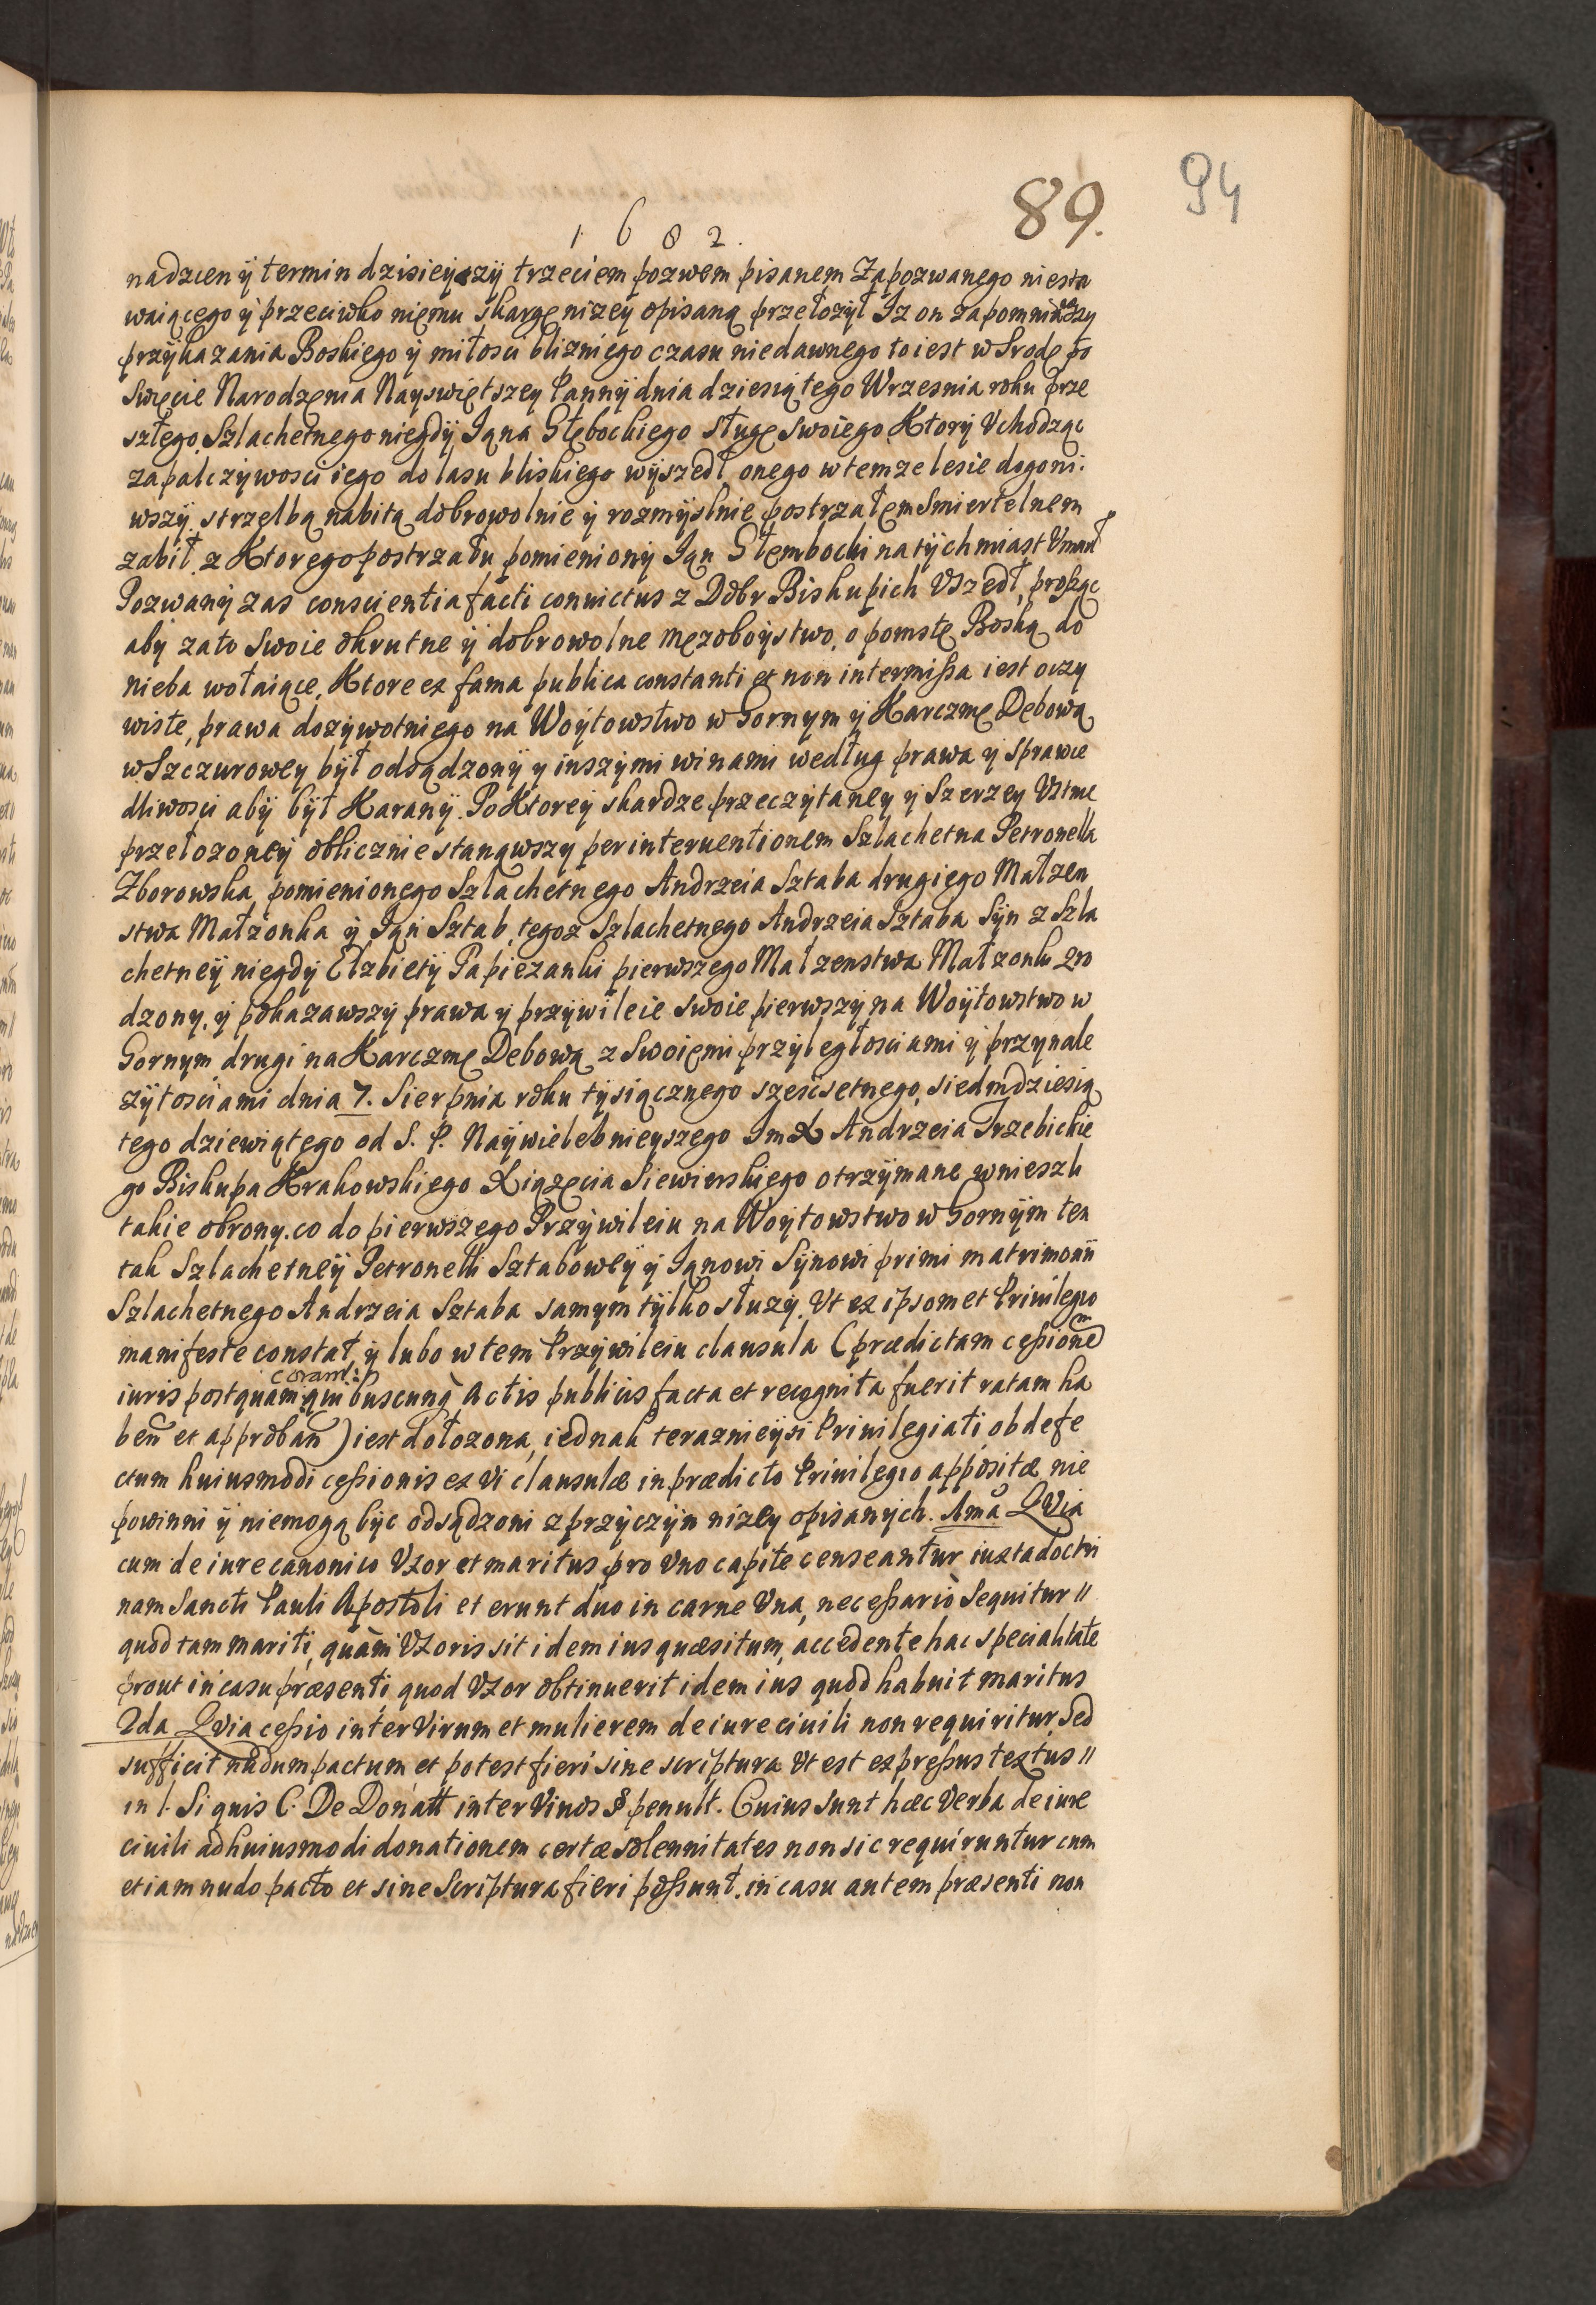 94
89.
1682.
nadzceny termin dzisieyszy trzeciem pozwem pisanem Zapozwanego niesta
waiącego y przeciwko niemu skargę nizey opisaną przełozył Iz on zapomniawszy
przykazania Boskiego y miłosci blizniego czasu niedawnego to iest w Srodę po
Swięcie Narodzęnia Nayswiętszey Panny dnia dziesiątego Wrzesnia roku prze
szłego Szlachetnego niegdy Iąna Głębockiego sługę swoiego Ktory Vchodząc
zapalczywosci iego do lasu bliskiego wyszedł, onego w temze lesie dogoni:
wszy, strzelbą nabitą dobrowolnie y rozmyslnie postrzałem Smiertelnem
zabił, z Ktorego postrzału pomieniony Iąn Głembocki natychmiast Vmarł
Pozwany zas conscientia facti conuictus z Dobr Biskupich Vszedł, prosząc
aby zato Swoie okrutne y dobrowolne Męzoboystwo, o pomstę Boską do
nieba wołaiące, Ktore ex fama publica constanti et non intermissa iest oczy
wiste, prawa dozywotniego na Woytowstwo w Gornym y Karczmę Dębową
w Szczurowey był odsądzony y inszymi winami według prawa y sprawie
dliwosci aby był Karany. Po Ktorey skardze przeczytaney y Szerzey Vstnie
przełozoney oblicznie stanąwszy per interuentionem Szlachetna Petronella
Zborowska pomienionego Szlachetnego Andrzeia Sztaba drugiego Małzen
stwa Małzonka y Iąn Sztab, tegoz Szlachetnego Andrzeia Sztaba Syn z Szla
chetney niegdy Elzbiety Papiezanki pierwszego Małzenstwa Małzonki zro
dzony, y pokazawszy prawa y przywileie swoie pierwszy na Woytowstwo w
Gornym drugi na Karczmę Dębową z Swoięmi przyległosciami y przynale
zytosciami dnia 7. Sierpnia roku tysiącznego szescsetnego, siedmdziesią
tego dziewiątego od S. P. Naywielebnieyszego Im X Andrzeia Trzebickie
go Biskupa Krakowskiego Xiązęcia Siewierskiego otrzymane wniesli
takie obrony. co do pierwszego Przywileiu na Woytowstwo w Gornym ten
tak Szlachetney Petronelli Sztabowey y Iąnowi Synowi primi matrimonij
Szlachetnego Andrzeia Sztaba samym tylko słuzy. Vt ex ipsomet Priuilegio
manifeste constat, y lubo w tem Przywileiu clausula (prædictam cessionem
iuris postquam coram quibuscunq̀ Actis publicis facta et recognita fuerit ratam ha
beñ et approbañ) iest dołozona, iednak teraznieysi Priuilegiati, ob defe
ctum huiusmodi cessionis ex vi clausulæ in prædicto Priuilegio appositæ nie
powinni y niemogą byc odsądzoni z przyczyn nizey opisanych. 1ma QVia
cum de iure canonico Vxor et maritus pro Vno capite censeantur iuxta doctri
nam Sancti Pauli Apostoli et erunt duo in carne Vna, necessariò Sequitur //
quod tam mariti, quàm Vxoris sit idem ius quæsitum, accedente hac specialitate
prout in casu præsenti quod Vxor obtinuerit idem ius quod habuit maritus
2da QVia cessio inter Virum et mulierem de iure ciuili non requiritur, Sed
sufficit nudum pactum et potest fieri sine scriptura Vt est expressus textus //
in l. Si quis C. De Donatt inter Viros § penult. Cuius Sunt hæc Verba de iure
ciuili ad huiusmodi donationem certæ solennitates non sic requiruntur cum
etiam nudo pacto et sine Scriptura fieri possunt, in casu autem præsenti non